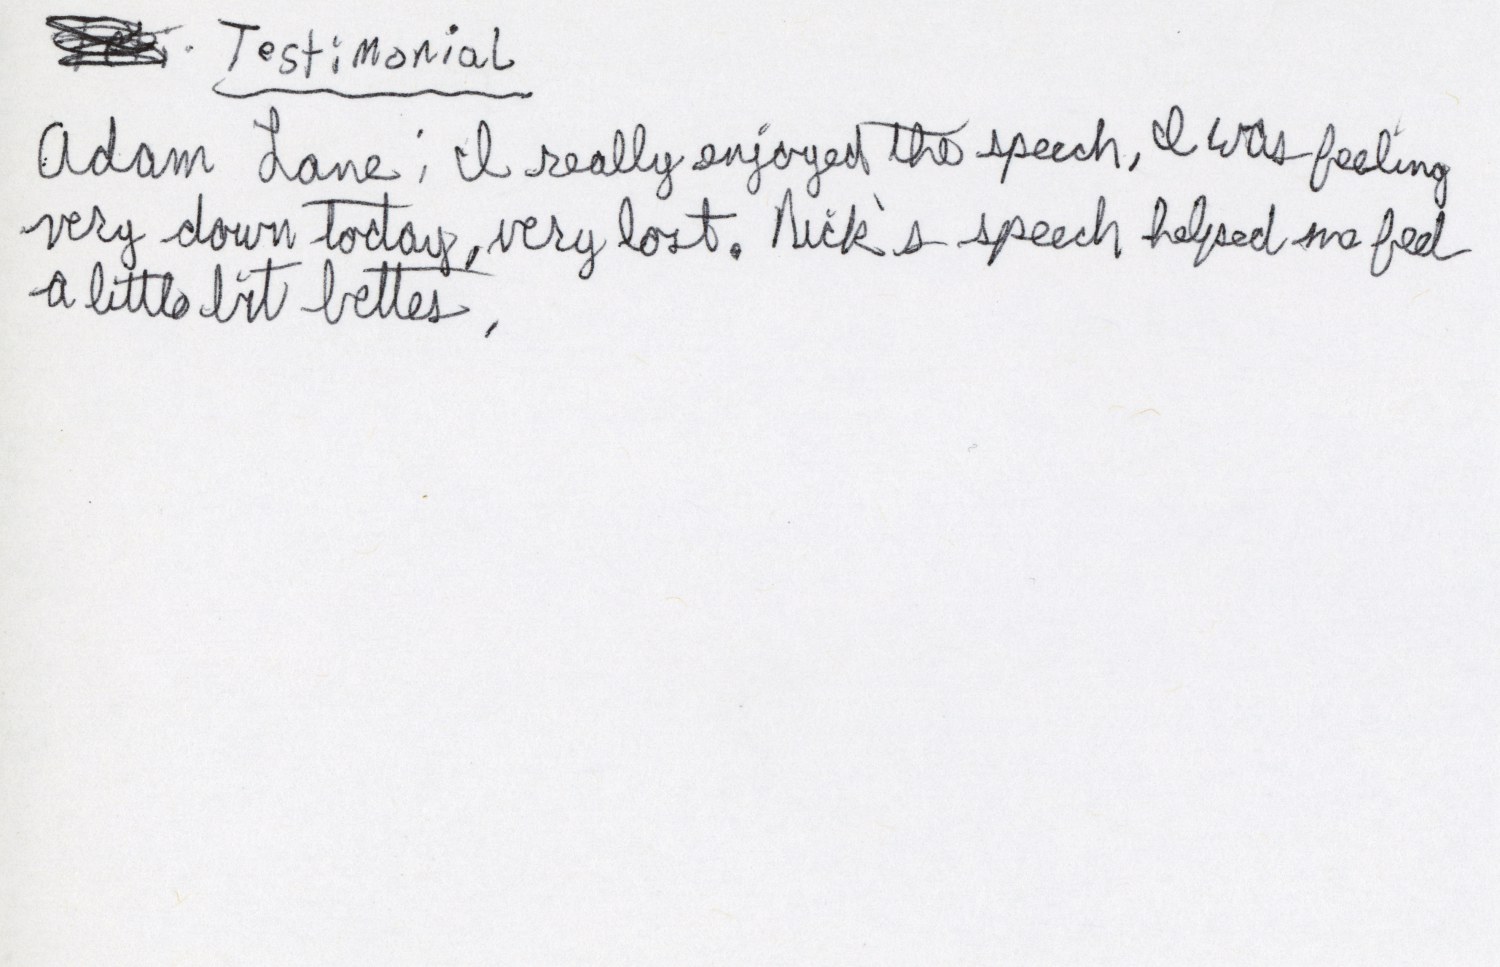 Testimonial
Adam Lane; I really enjoyed the speech, I was feeling
very down today, very lost. Nick's speech helped me feel
a little bit better,